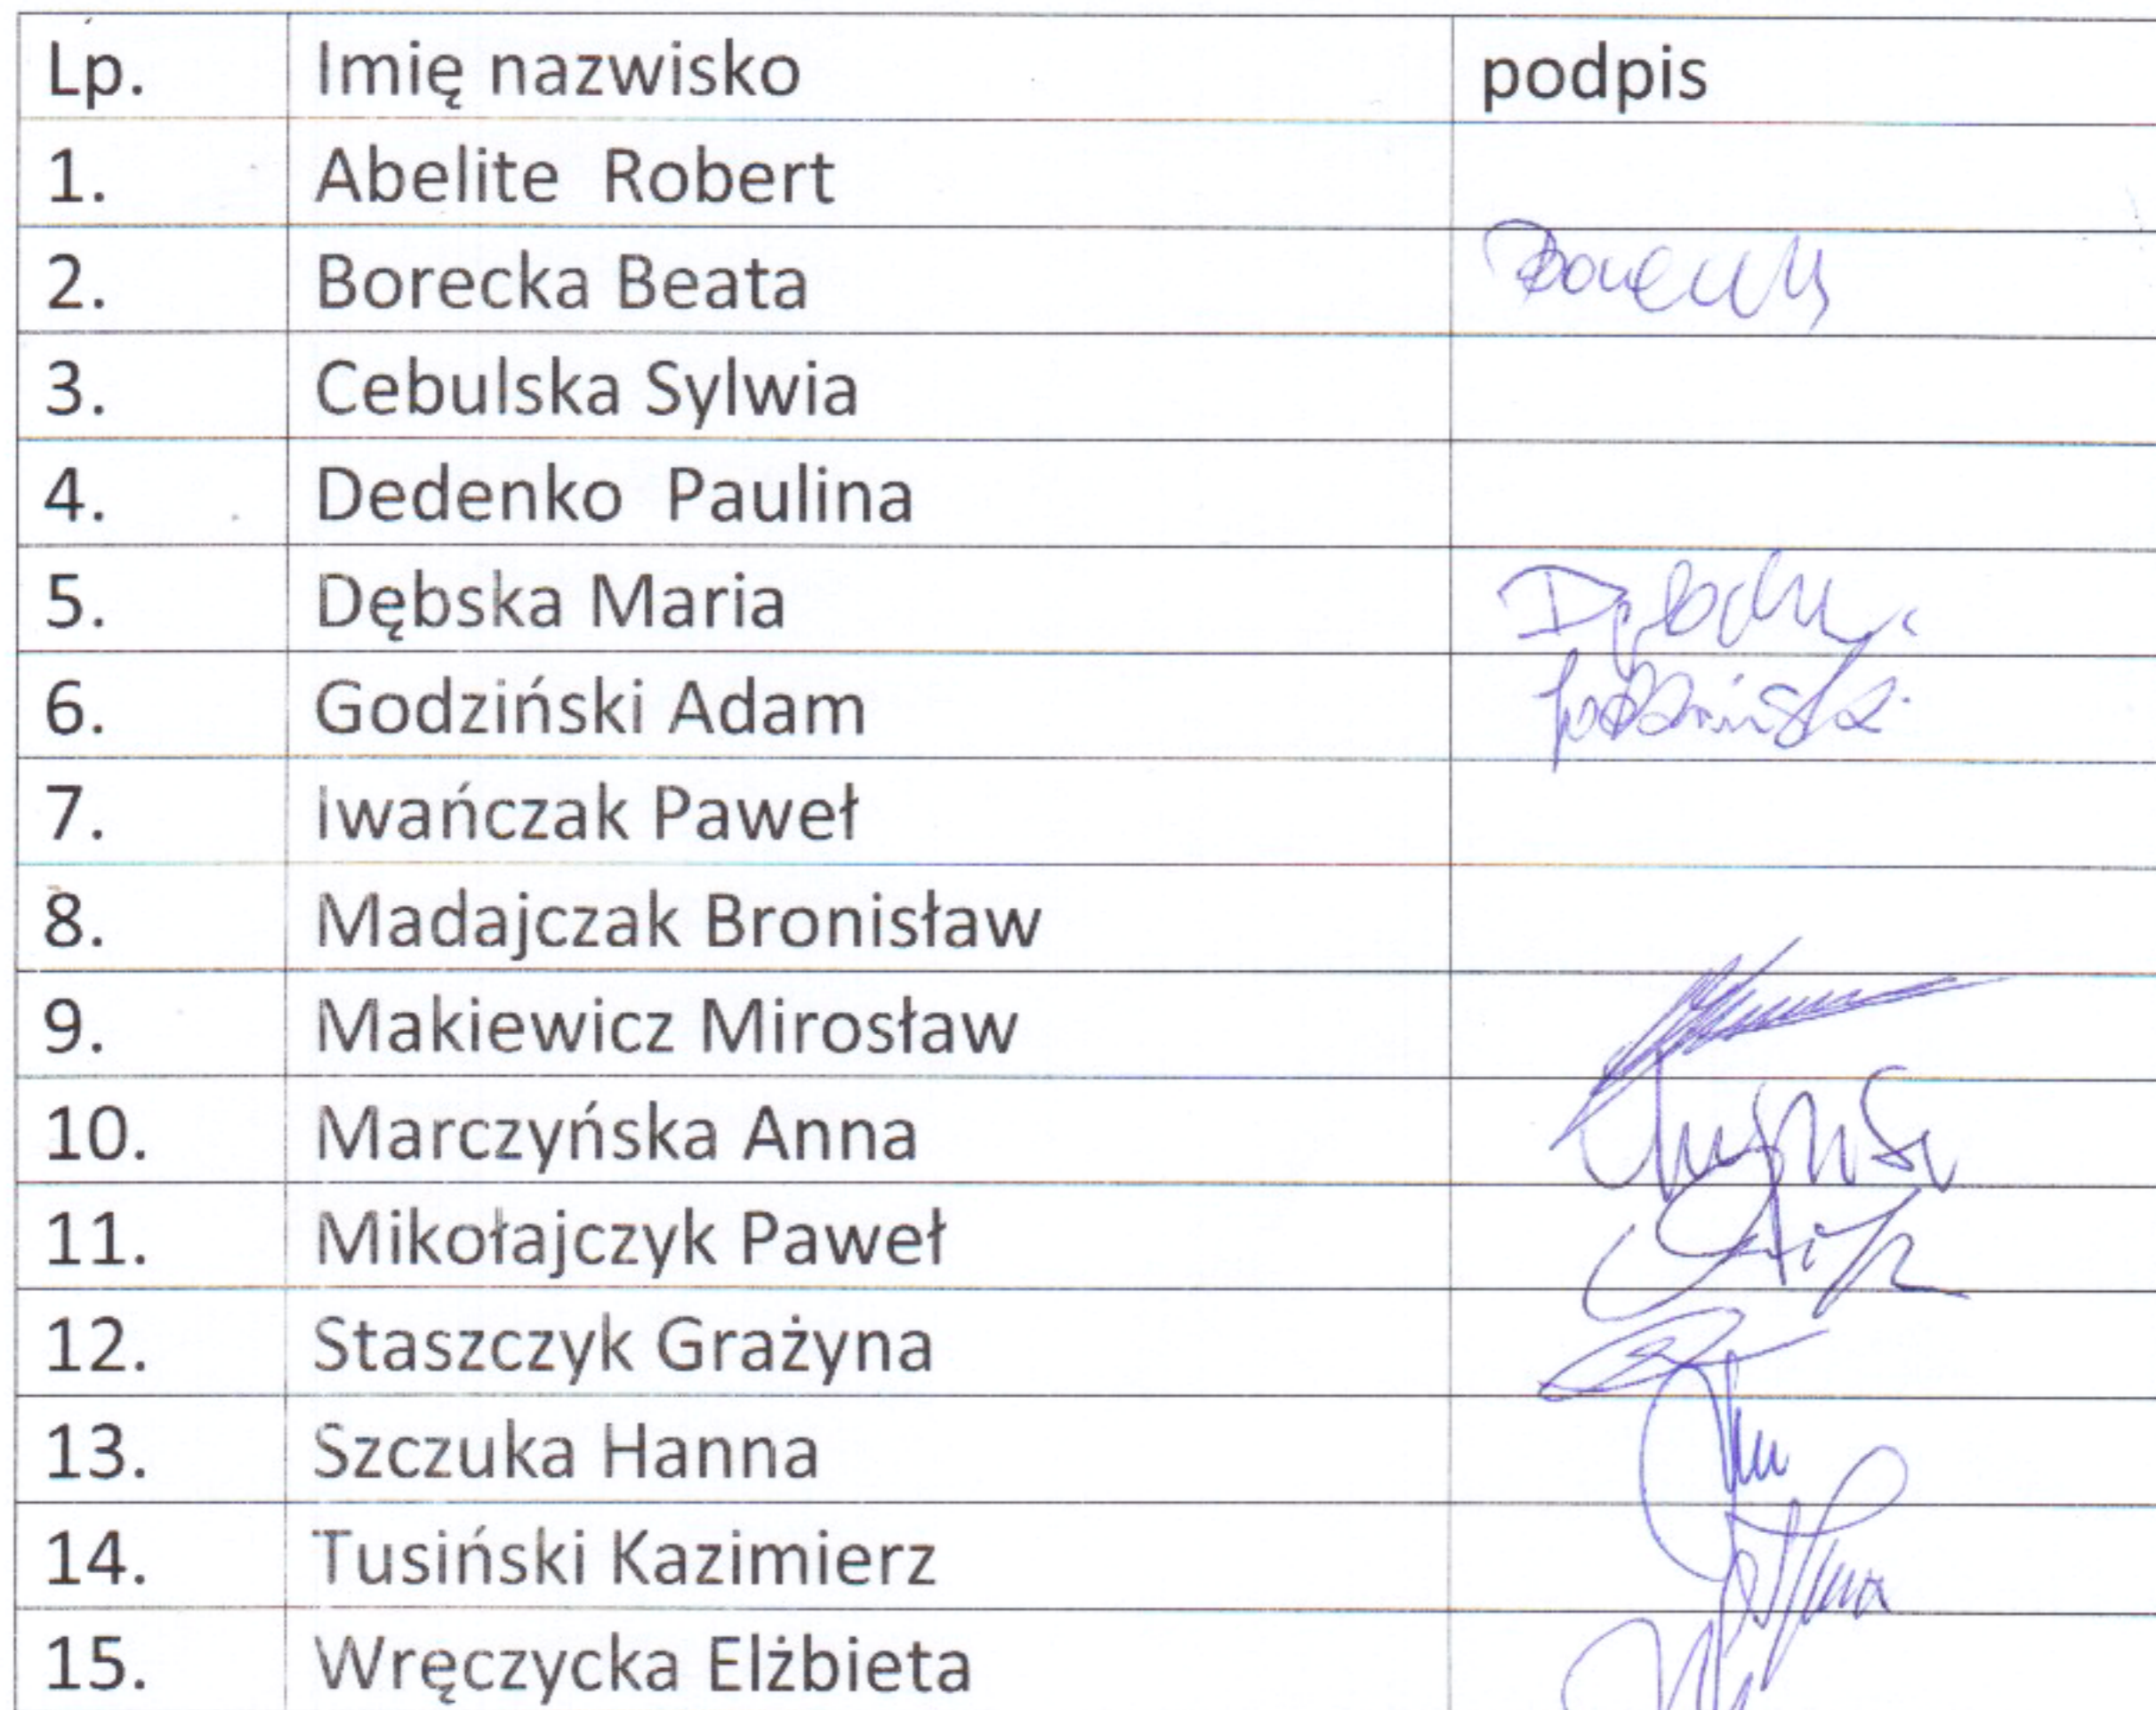 Lp. Imię nazwisko podpis
1. Abelite Robert
2. Borecka Beata
3. Cebulska Sylwia
4. Dedenko Paulina
5. Dębska Maria
6. Godziński Adam
7. Iwańczak Paweł
8. Madajczak Bronisław
9. Makiewicz Mirosław
10. Marczyńska Anna
11. Mikołajczyk Paweł
12. Staszczyk Grażyna
13. Szczuka Hanna
14. Tusiński Kazimierz
15. Wręczycka Elżbieta